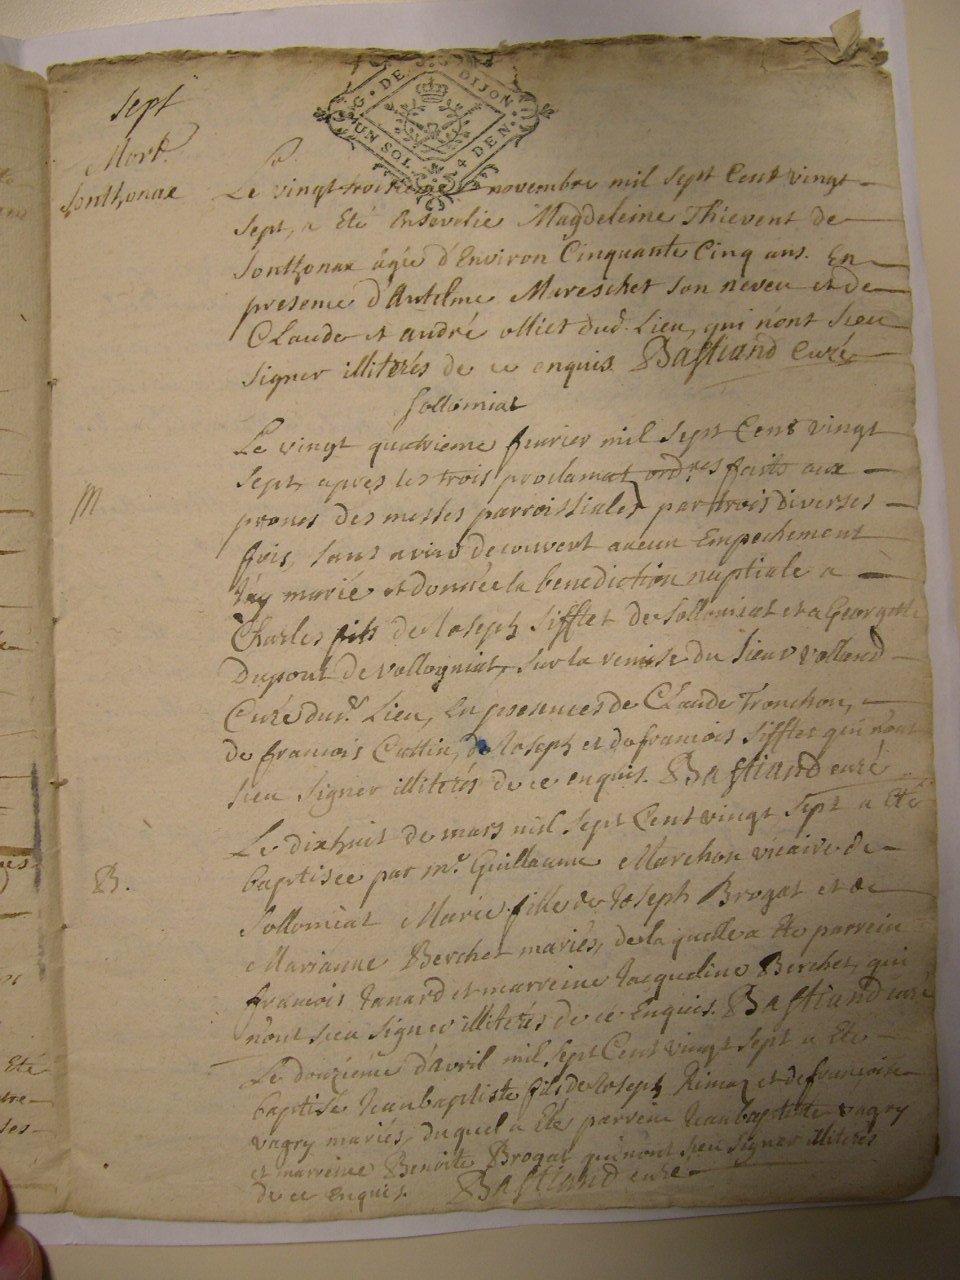 sept
Mort.
Sonthonax
G. DE DIJON
UN SOL 4 DEN.
Le
Le vingt troisieme novembre mil sept Cent vingt
sept, a Eté Ensevelie Magdeleine Thievent de
Sonthonax âgée d'Environ Cinquante Cinq ans. En
presence d'Antelme Mareschet son neveu et de
Claude et andré olliet dud. Lieu, qui n'ont sceu
signer illiterés de ce enquis. Bastiand Curé
Sollomiat
Le vingt quatrieme fevrier mil sept Cens vingt
sept, apres les trois proclamat. ordres faits aux
prones des messes parroissiales par trois diverses
fois, sans avoir decouvert aucun Empechement
M
J'ay marié et donnée la benediction nuptiale a
Charles fils de Joseph Sifflet de Sollomiat et a Georgette
Dupont de vollogniat, sur la remise du Sieur volland
Curé dud. Lieu, En presences de Claude Tronchon,
de francois Cuttin, de Joseph et de francois Sifflet qui n'ont
sceu signer illiterés de ce enquis. Bastiand curé
Le dixhuit de mars mil sept Cent vingt sept a Eté
B.
baptisée par mr. Guillaume Marchon vicaire de
Sollomiat Marie fille de Joseph Brogat et de
Marianne Berchet mariés, de laquelle a Ete parrein
francois Janard et marreine Jacqueline Berchet, qui
n'ont sceu signer illiterés de ce Enquis. Bastiand curé
Le douziéme d'Avril mil sept Cent vingt sept a Ete
baptisé Jean baptiste fils de Joseph Rimaz et de françoise
vagry mariés, duquel a Eté parrein Jean baptiste vagry
et marreine Benoite Brogat qui n'ont sceu signer illiterés
de ce Enquis. Bastiand curé